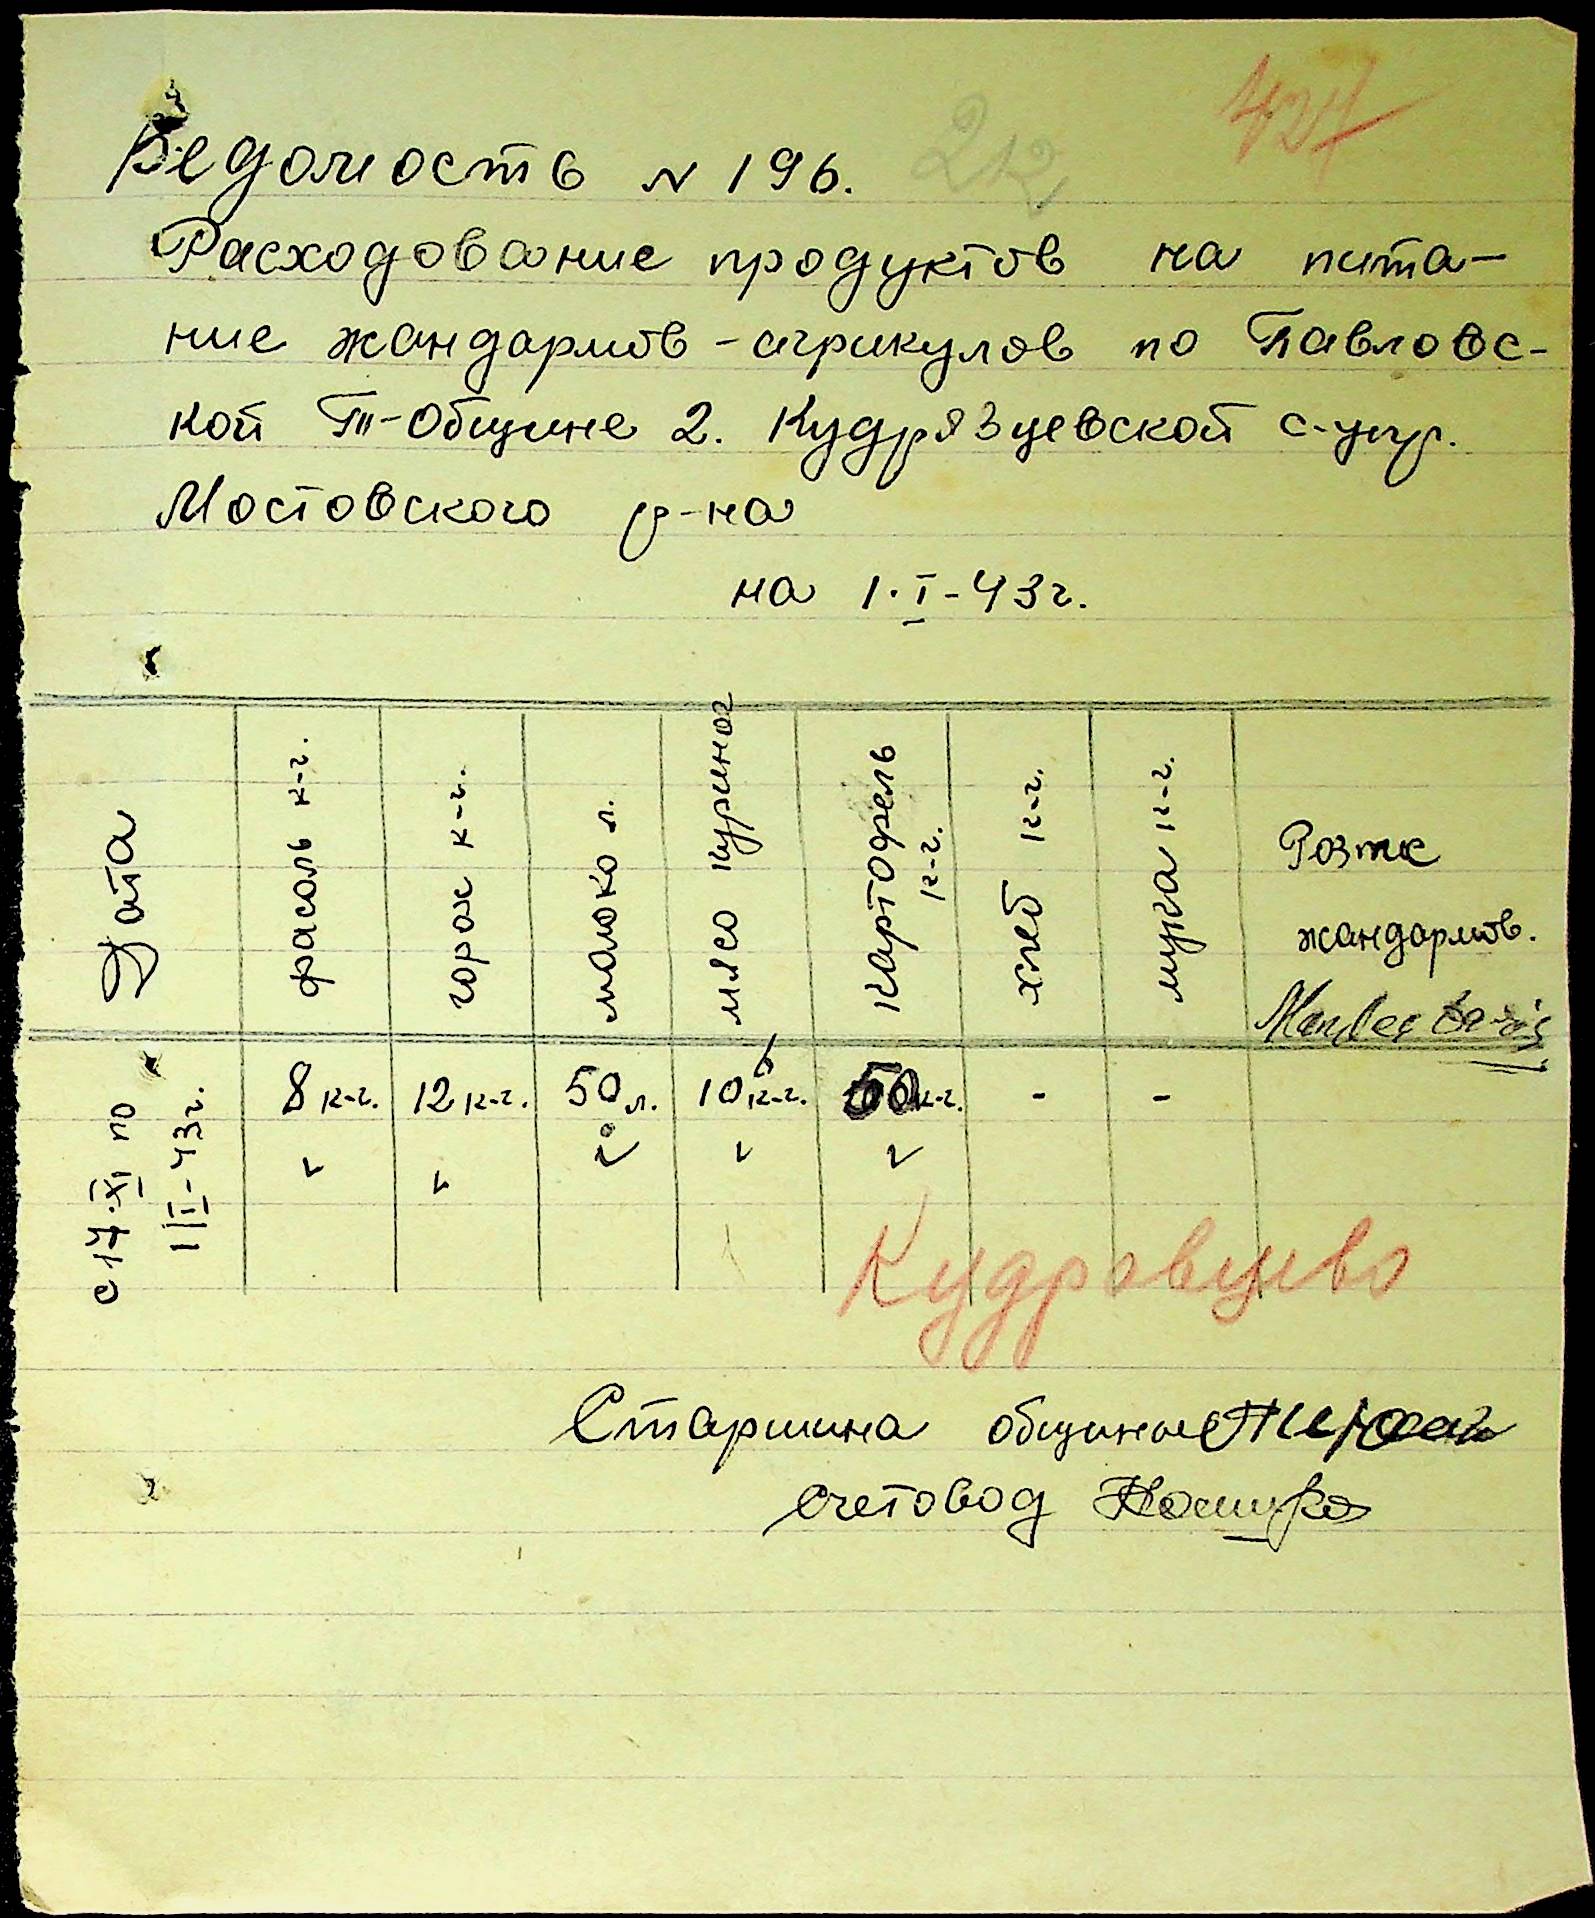 427
212
Ведомость № 196.
Расходование продуктов на пита-
ние жандармов-агрикулов по Павловс-
кой Т-Общине 2. Кудрязцевской с-упр.
Мостовского р-на
на 1·I-43г.
Дата
фасоль к-г.
горох к-г.
молоко л.
мясо куриное
картофель к-г.
хлеб к-г.
мука к-г.
Розпис
жандармов.
с 17·XI по 1/I-43г.
8 к-г. 12 к-г. 50 л. 10 к-г. 60 к-г. - -
Кудровцево
Старшина общины
счетовод